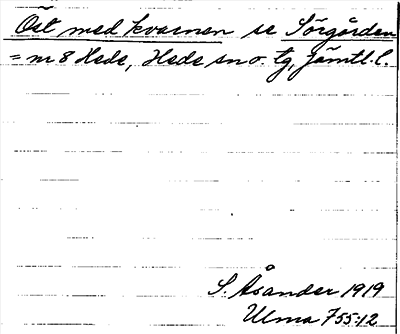 Öst med kvarnen se Sörgården
= nr 8 Hede, Hede sn o. tg, Jämtl. l.
S. Åsander 1919
Ulma 755:12